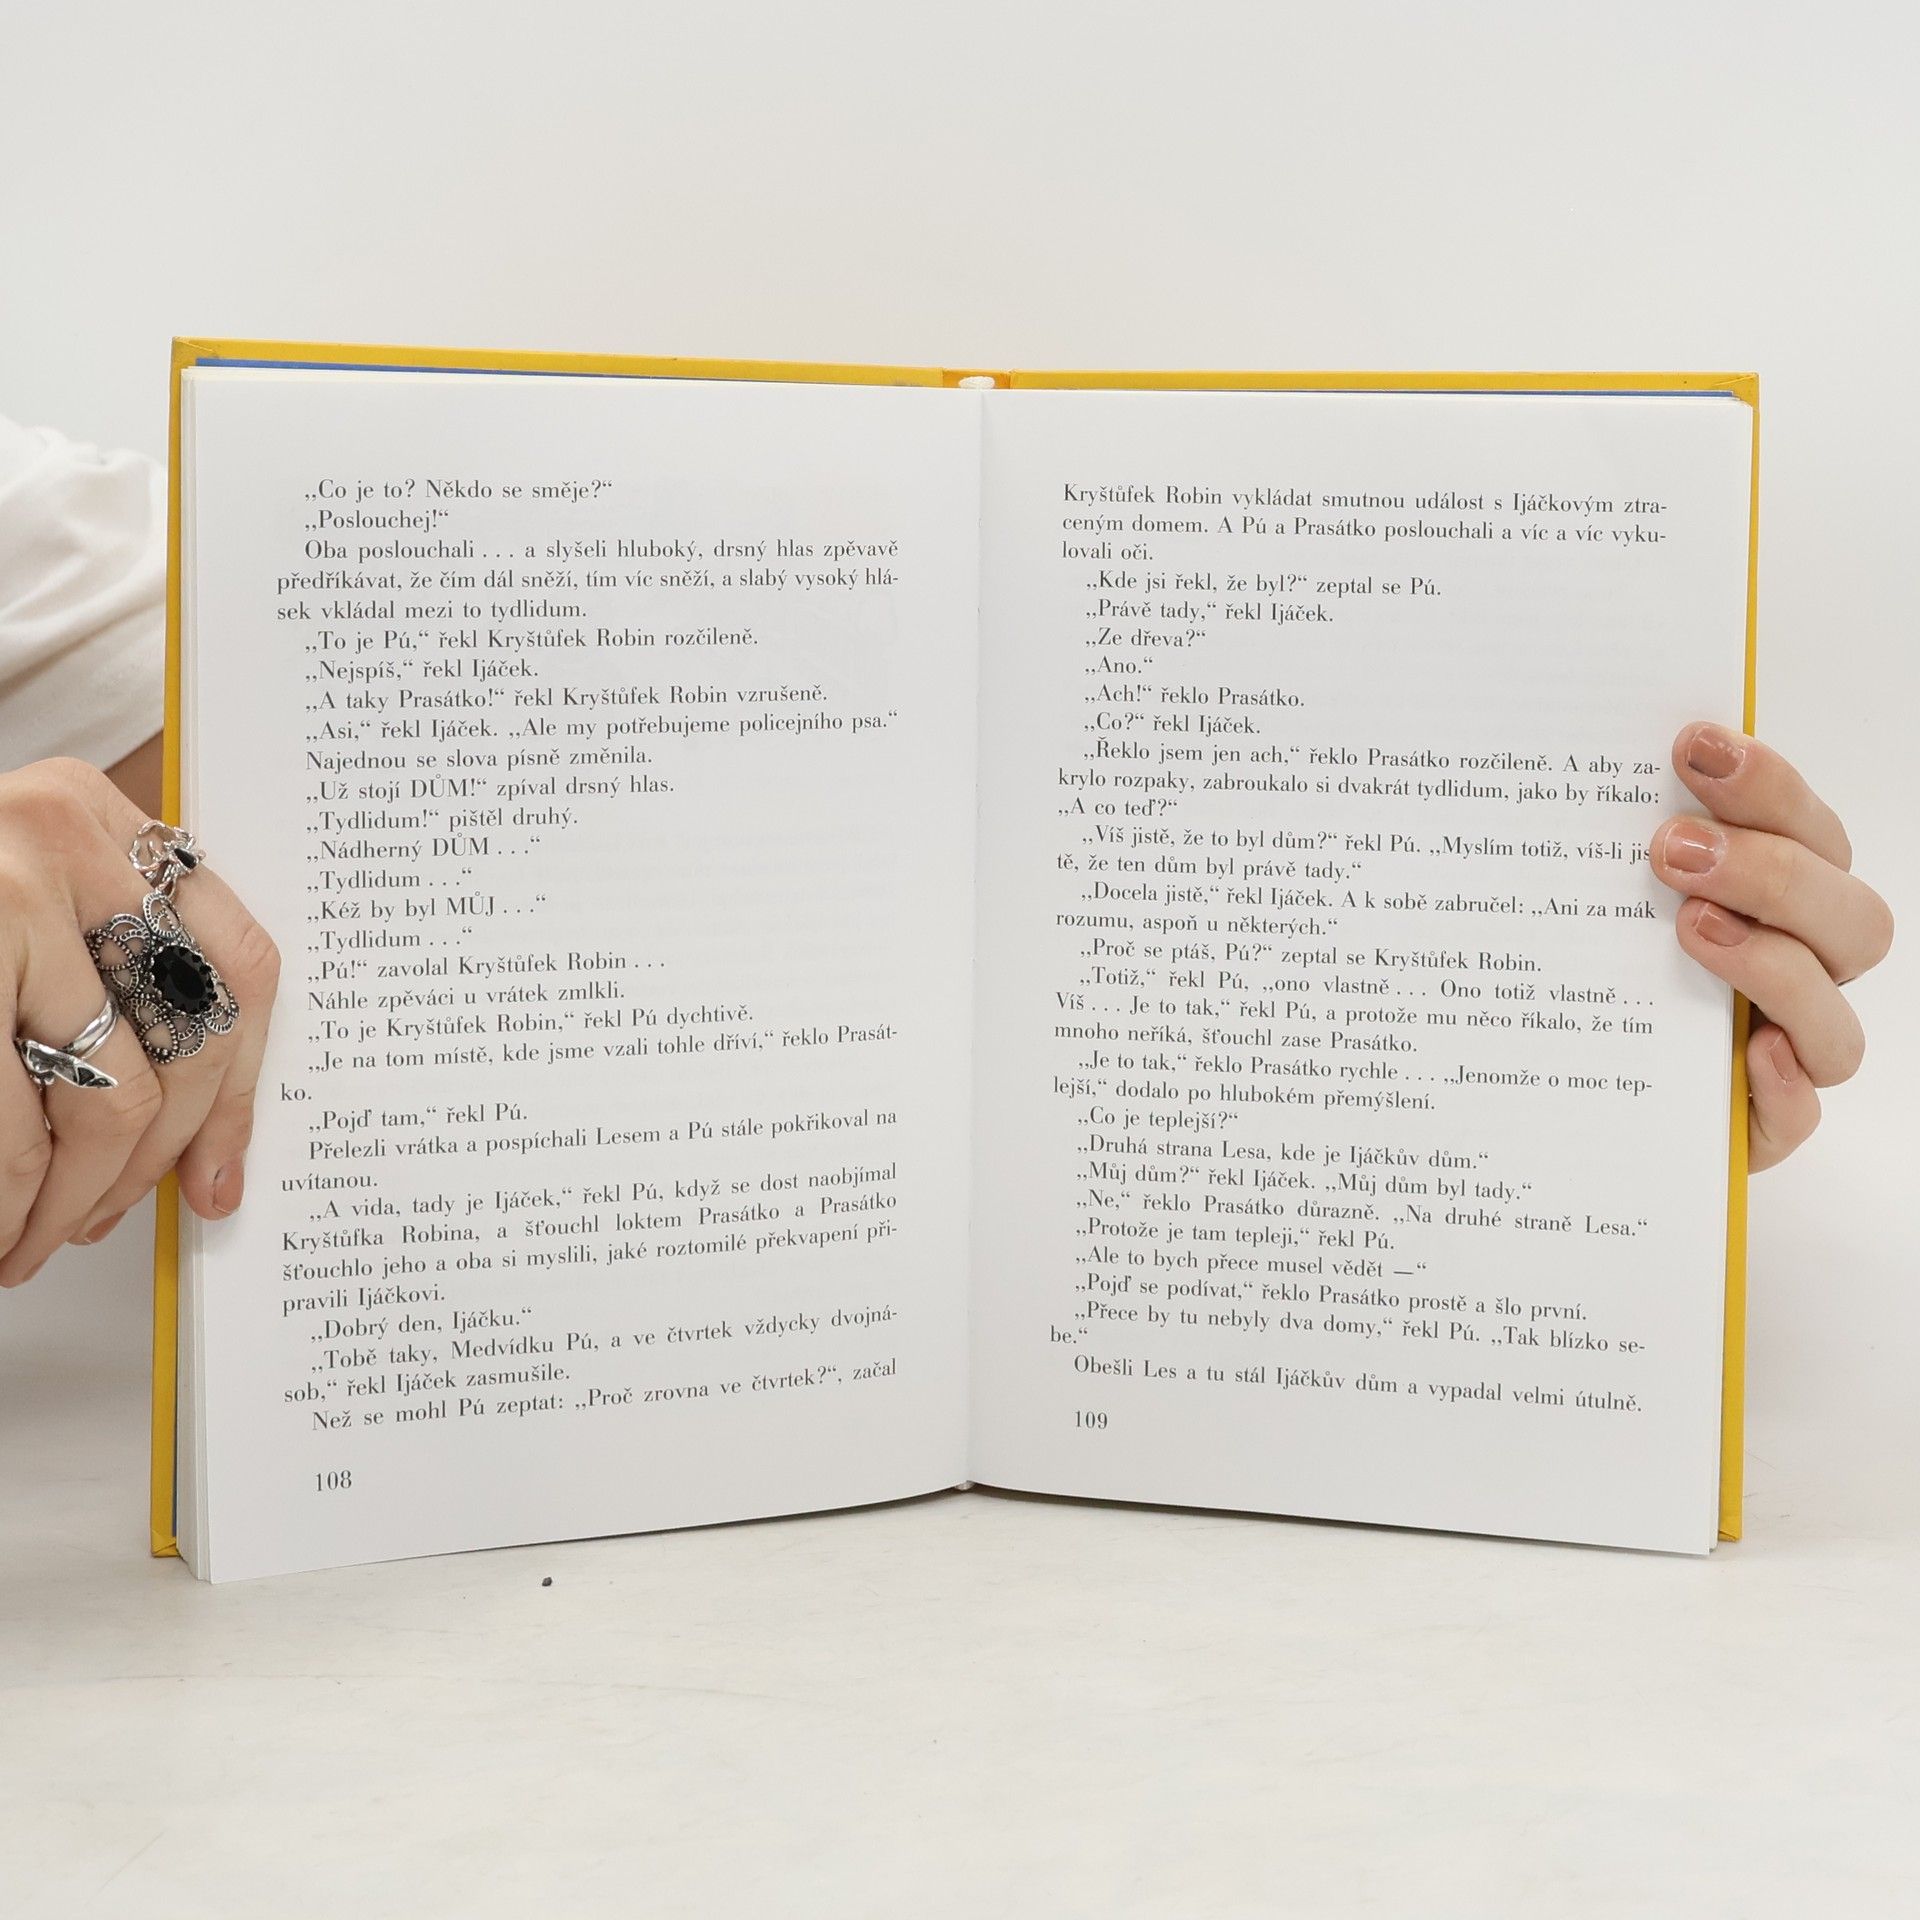 ,,Co je to? Někdo se směje?“
,,Poslouchej!“
Oba poslouchali . . . a slyšeli hluboký, drsný hlas zpěvavě
předříkávat, že čím dál sněží, tím víc sněží, a slabý vysoký hlá-
sek vkládal mezi to tydlidum.
,,To je Pú,“ řekl Kryštůfek Robin rozčileně.
,,Nejspíš,“ řekl Ijáček.
,,A taky Prasátko!“ řekl Kryštůfek Robin vzrušeně.
,,Asi,“ řekl Ijáček. ,,Ale my potřebujeme policejního psa.“
Najednou se slova písně změnila.
,,Už stojí DŮM!“ zpíval drsný hlas.
,,Tydlidum!“ pištěl druhý.
,,Nádherný DŮM . . .“
,,Tydlidum . . .“
,,Kéž by byl MŮJ . . .“
,,Tydlidum . . .“
,,Pú!“ zavolal Kryštůfek Robin . . .
Náhle zpěváci u vrátek zmlkli.
,,To je Kryštůfek Robin,“ řekl Pú dychtivě.
,,Je na tom místě, kde jsme vzali tohle dříví,“ řeklo Prasát-
ko.
,,Pojď tam,“ řekl Pú.
Přelezli vrátka a pospíchali Lesem a Pú stále pokřikoval na
uvítanou.
,,A vida, tady je Ijáček,“ řekl Pú, když se dost naobjímal
Kryštůfka Robina, a šťouchl loktem Prasátko a Prasátko
šťouchlo jeho a oba si myslili, jaké roztomilé překvapení při-
pravili Ijáčkovi.
,,Dobrý den, Ijáčku.“
,,Tobě taky, Medvídku Pú, a ve čtvrtek vždycky dvojná-
sob,“ řekl Ijáček zasmušile.
Než se mohl Pú zeptat: ,,Proč zrovna ve čtvrtek?“, začal
108
Kryštůfek Robin vykládat smutnou událost s Ijáčkovým ztra-
ceným domem. A Pú a Prasátko poslouchali a víc a víc vyku-
lovali oči.
,,Kde jsi řekl, že byl?“ zeptal se Pú.
,,Právě tady,“ řekl Ijáček.
,,Ze dřeva?“
,,Ano.“
,,Ach!“ řeklo Prasátko.
,,Co?“ řekl Ijáček.
,,Řeklo jsem jen ach,“ řeklo Prasátko rozčileně. A aby za-
krylo rozpaky, zabroukalo si dvakrát tydlidum, jako by říkalo:
,,A co teď?“
,,Víš jistě, že to byl dům?“ řekl Pú. ,,Myslím totiž, víš-li jis
tě, že ten dům byl právě tady.“
,,Docela jistě,“ řekl Ijáček. A k sobě zabručel: ,,Ani za mák
rozumu, aspoň u některých.“
,,Proč se ptáš, Pú?“ zeptal se Kryštůfek Robin.
,,Totiž,“ řekl Pú, ,,ono vlastně . . . Ono totiž vlastně . . .
Víš . . . Je to tak,“ řekl Pú, a protože mu něco říkalo, že tím
mnoho neříká, šťouchl zase Prasátko.
,,Je to tak,“ řeklo Prasátko rychle . . . ,,Jenomže o moc tep-
lejší,“ dodalo po hlubokém přemýšlení.
,,Co je teplejší?“
,,Druhá strana Lesa, kde je Ijáčkův dům.“
,,Můj dům?“ řekl Ijáček. ,,Můj dům byl tady.“
,,Ne,“ řeklo Prasátko důrazně. ,,Na druhé straně Lesa.“
,,Protože je tam tepleji,“ řekl Pú.
,,Ale to bych přece musel vědět —“
,,Pojď se podívat,“ řeklo Prasátko prostě a šlo první.
,,Přece by tu nebyly dva domy,“ řekl Pú. ,,Tak blízko se-
be.“
Obešli Les a tu stál Ijáčkův dům a vypadal velmi útulně.
109